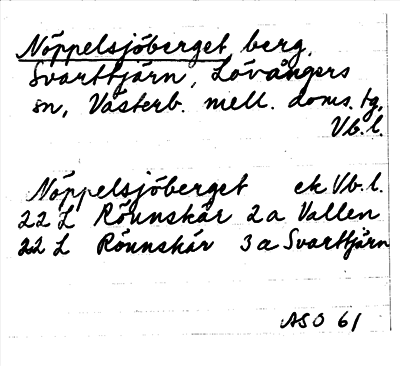 Nöppelsjöberget, berg,
Svarttjärn, Lövångers
sn, Västerb. mell. doms. tg,
Vb. l.
Nöppelsjöberget ek Vb. l.
22 L Rönnskär 2a Vallen
22 L Rönnskär 3a Svarttjärn
ASO 61